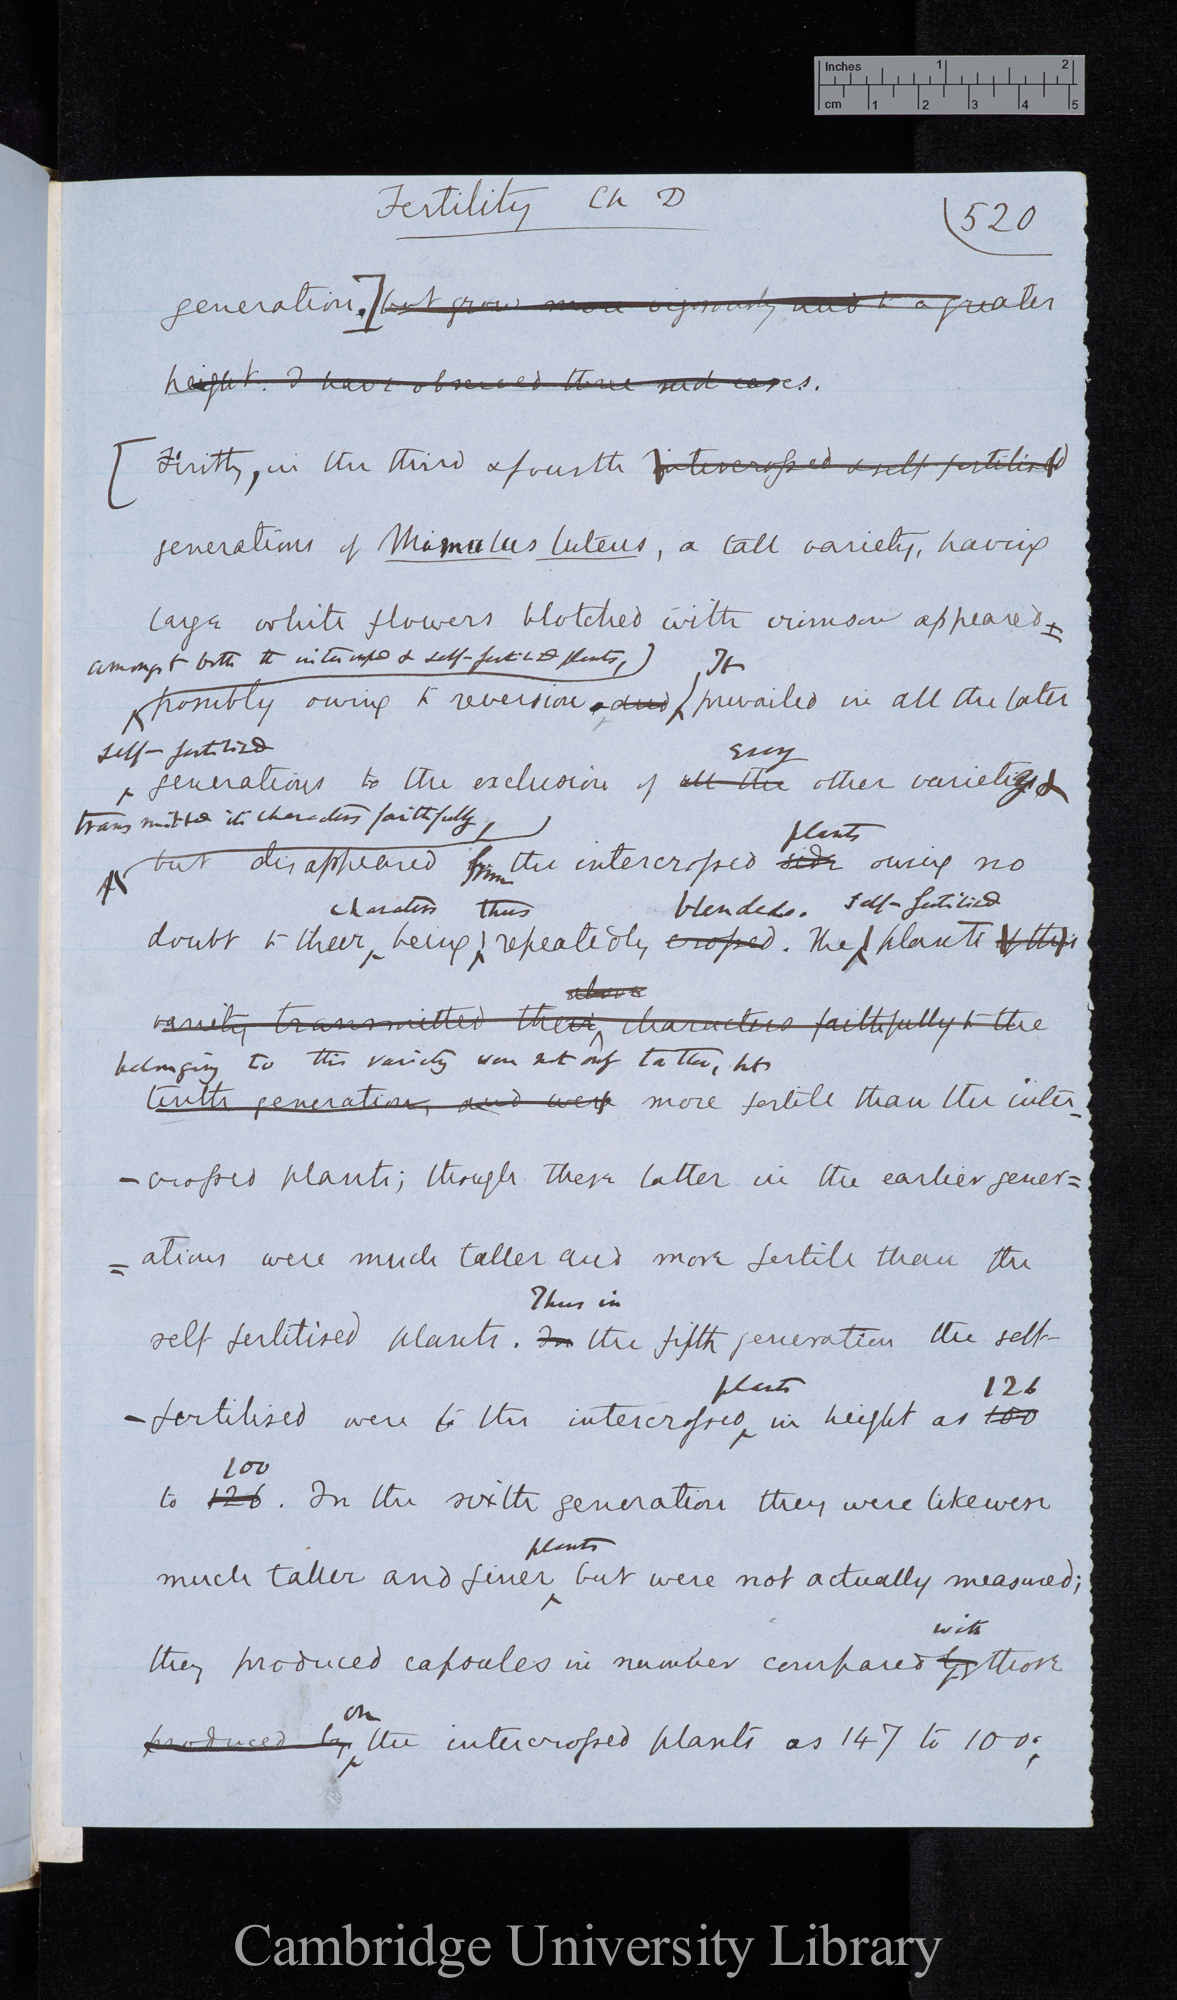 Inches 1 2
cm 1 2 3 4 5
Fertility Ch D
520
generation.] but grow more vigorously and to a greater
height. I have observed three such cases.
[Firstly, in the third & fourth intercrossed & self fertilised
generations of Mimulus luteus, a tall variety, having
large white flowers blotched with crimson appeared
amongst both the intercrossed & self-fertilised plants,)
It
possibly owing to reversion, and prevailed in all the later
self-fertilised
every
generations to the exclusion of all the other variety &
transmitted its characters faithfully,
plants
but disappeared from the intercrossed side owing no
characters thus blended. self-fertilised
doubt to their being repeatedly crossed. The plants of this
above
variety transmitted their characters faithfully to the
belonging to this variety were not only taller, but
tenth generation, and were more fertile than the inter-
-crossed plants; though these latter in the earlier gener=
=ations were much taller and more fertile than the
Thus in
self fertilised plants. In the fifth generation the self-
plants 126
-fertilised were to the intercrossed in height as 100
100
to 126. In the sixth generation they were likewise
plants
much taller and finer but were not actually measured;
with
they produced capsules in number compared by those
on
produced by the intercrossed plants as 147 to 100;
Cambridge University Library